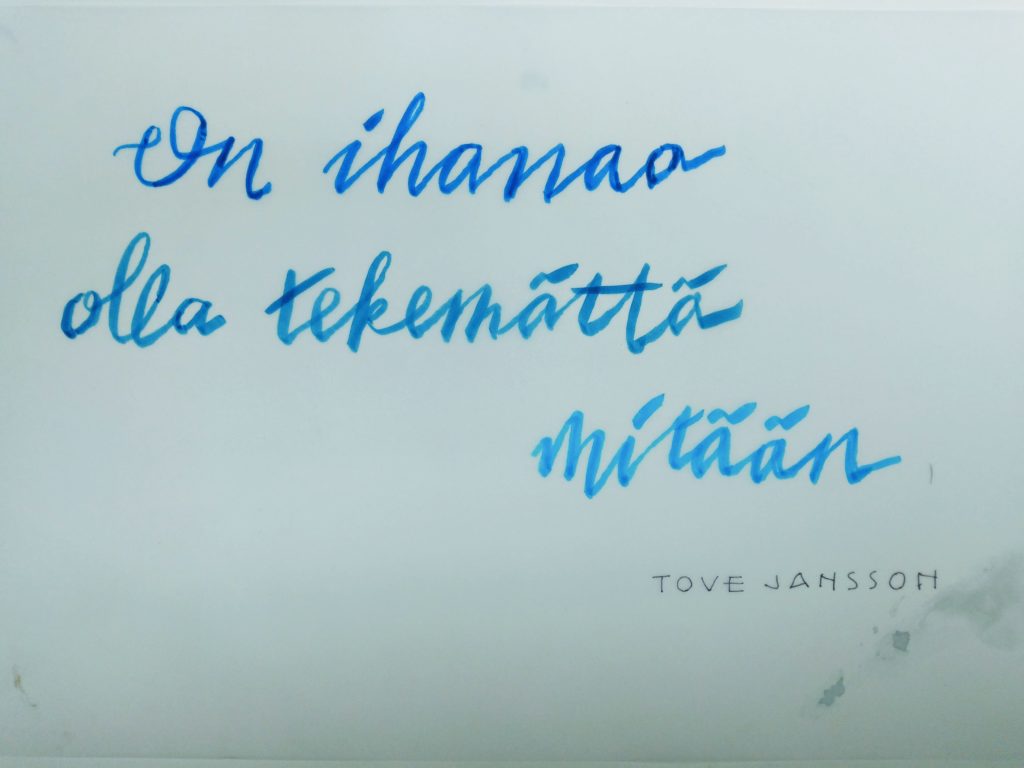 On ihanaa
olla tekemättä
mitään
TOVE JANSSON